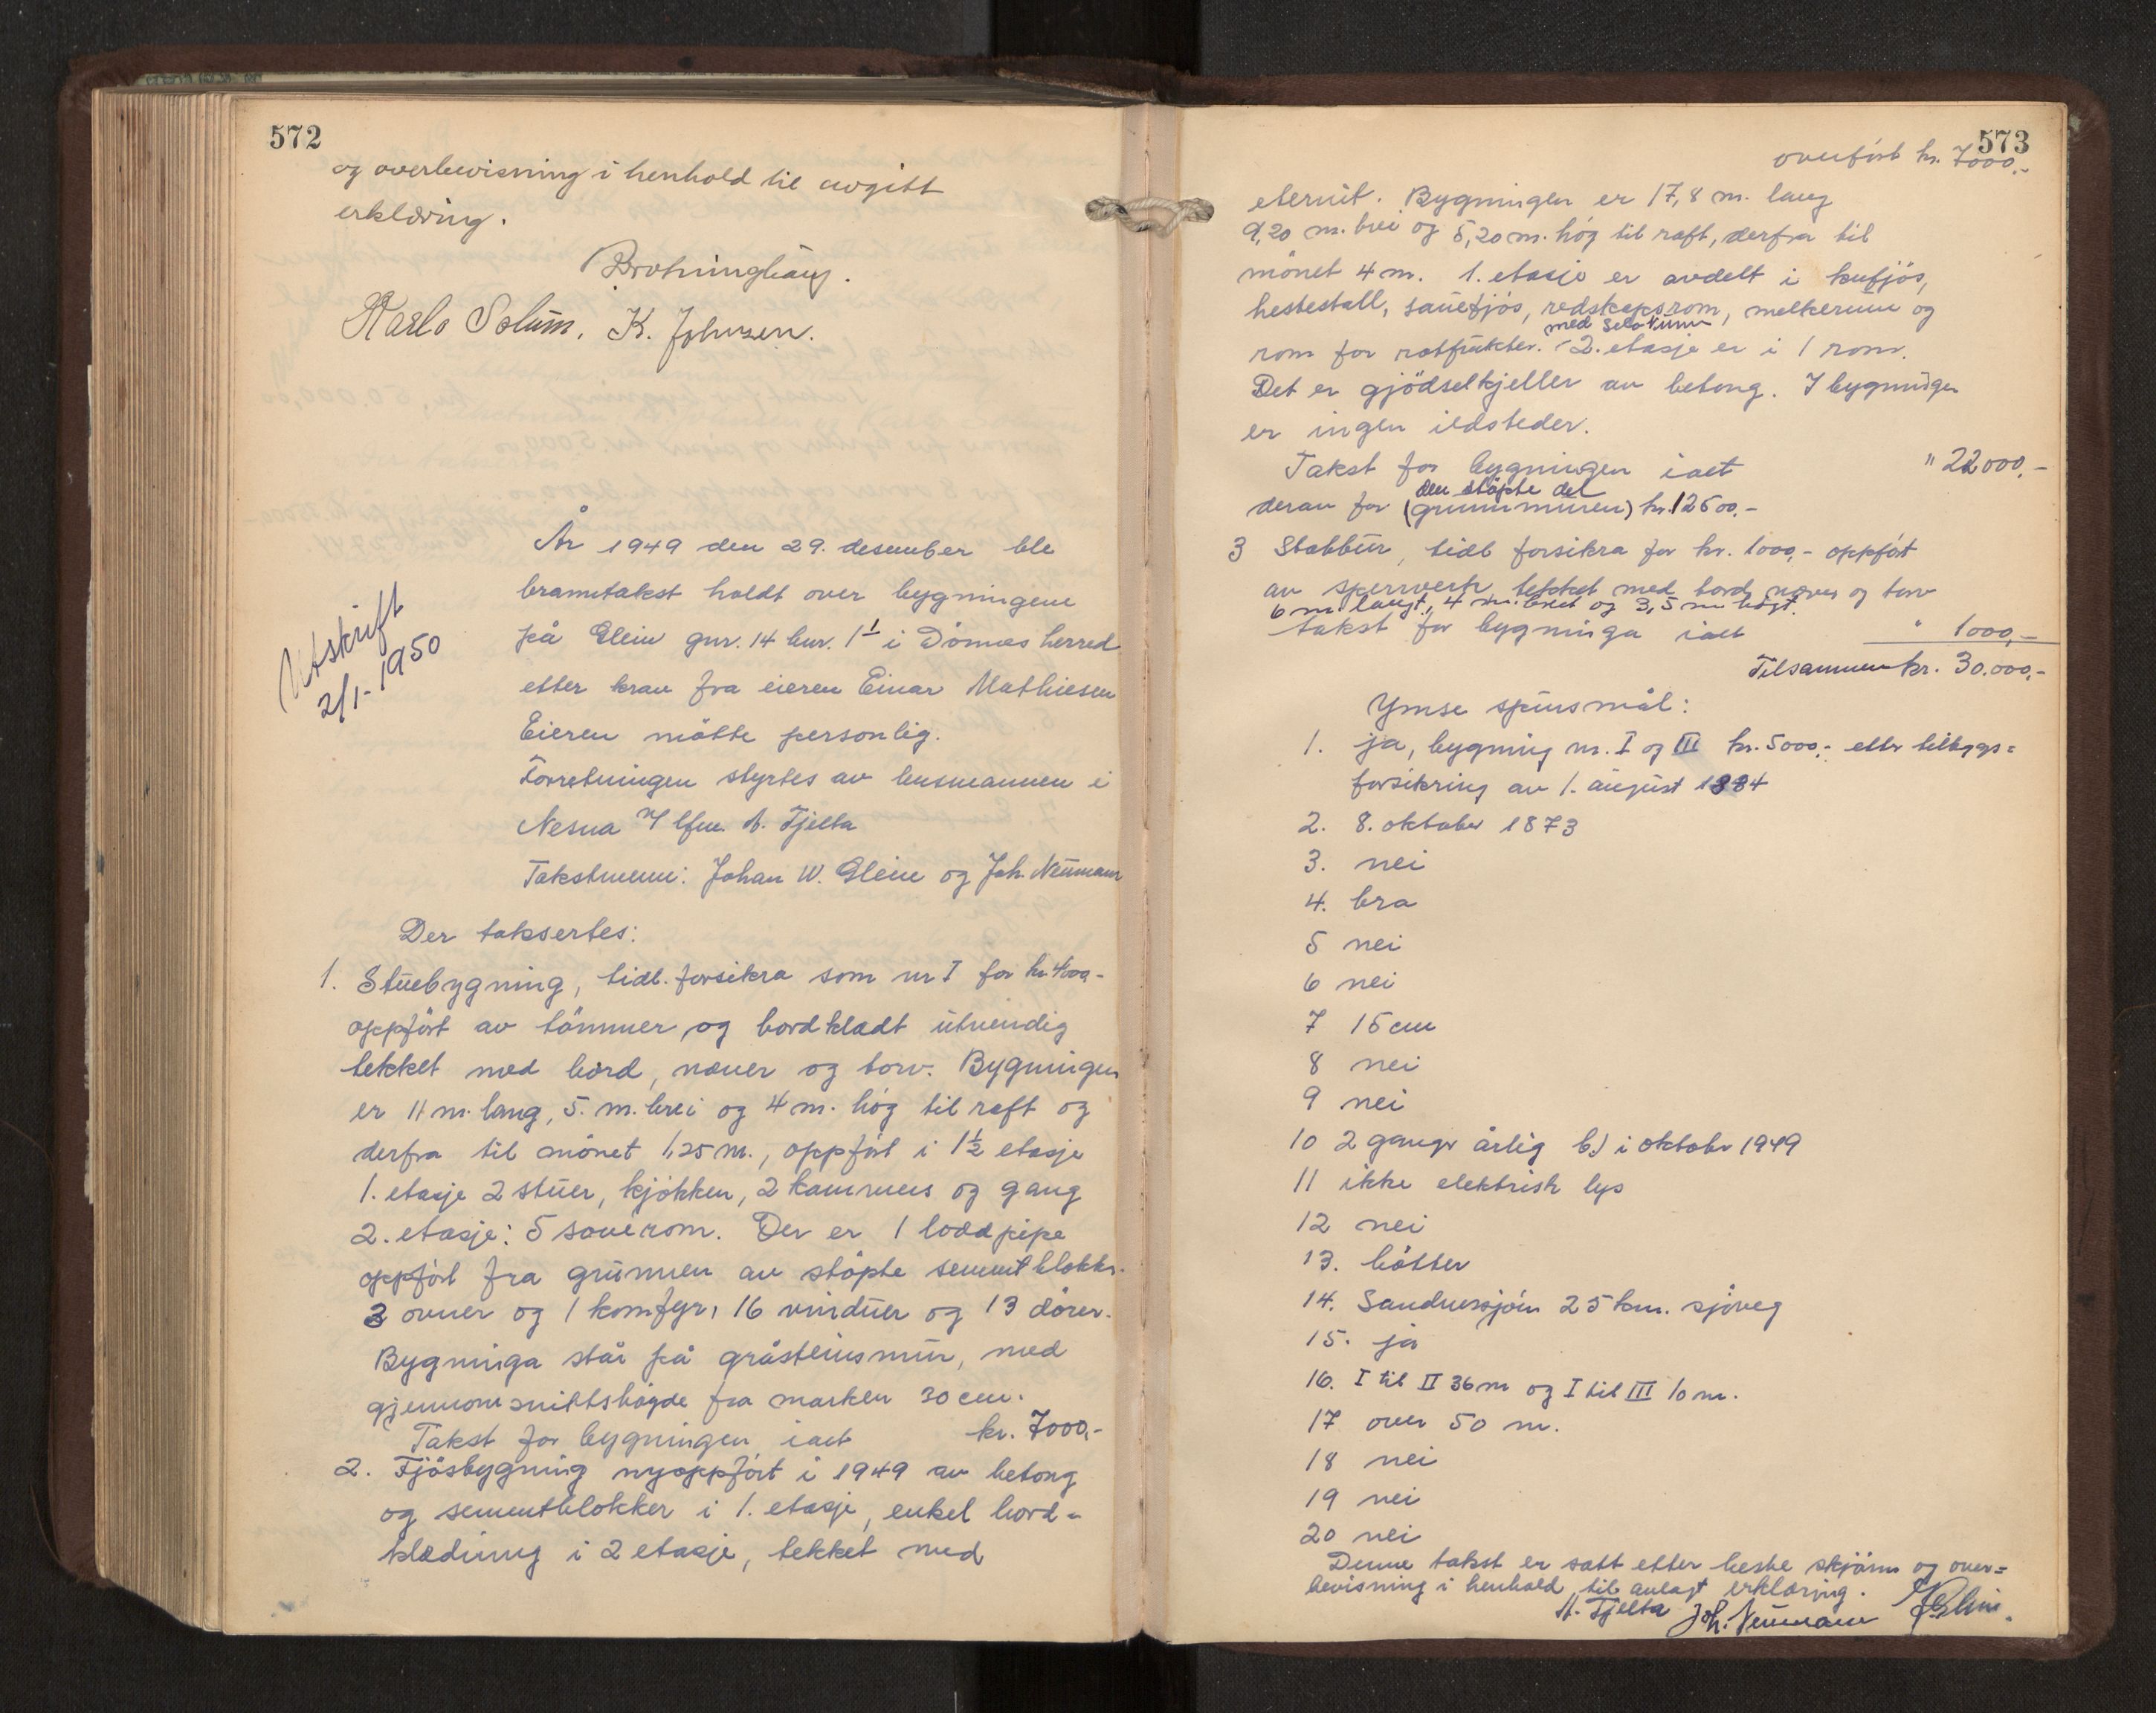 572
og overbevisning i henhold til avgitt
erklæring.
Karlo Solum. K. Johnsen.
Utskrift
2/1-1950
År 1949 den 29. desember ble
branntakst holdt over bygningene
på Glein gnr. 14 bnr. 1 i Dønnes herred
etter krav fra eieren Einar Mathiesen
Eieren møtte personlig.
Forretningen styrtes av lensmannen i
Nesna v/ lfm. A. Fjelta
Takstmenn: Johan W. Glein og Joh. Neumann
Der taksertes:
1. Stuebygning, tidl. forsikra som nr I for kr 4000-
oppført av tømmer og bordkledt utvendig
tekket med bord, never og torv. Bygningen
er 11 m. lang, 5. m. brei og 4 m. høg til raft og
derfra til mønet 1,25 m., oppført i 1½ etasje
1. etasje 2 stuer, kjøkken, 2 kammers og gang
2. etasje: 5 soverom. Der er 1 loddpipe
oppført fra grunnen av støpte sementblokker.
3 ovner og 1 komfyr, 16 vinduer og 13 dører.
Bygninga står på gråsteinsmur, med
gjennomsnittshøgde fra marken 30 cm.
Takst for bygningen ialt kr. 7000,-
2. Fjøsbygning nyoppført i 1949 av betong
og sementblokker i 1. etasje, enkel bord-
kledning i 2 etasje, tekket med
573
overført kr. 7000.-
eternit. Bygningen er 17,8 m. lang
9,20 m. brei og 5,20 m. høg til raft, derfra til
mønet 4 m. 1. etasje er avdelt i kufjøs,
hestestall, sauefjøs, redskapsrom, melkerum og
med
rom for rotfrukter. 2. etasje er i 1 rom.
Det er gjødselkjeller av betong. I bygningen
er ingen ildsteder.
Takst for bygningen ialt " 22000,-
den støpte del
derav for (grunnmuren) kr. 12500.-
3 Stabbur, tidl forsikra for kr. 1000,- oppført
av sperrverk tekket med bord, never og torv
6 m. langt, 4 m. breit og 3,5 m høgt.
takst for bygninga ialt " 1000,-
Tilsammen kr. 30.000,-
Ymse spursmål:
1. ja, bygning nr. I og III kr. 5000,- etter tilbygs=
forsikring av 1. august 1884
2. 8. oktober 1873
3. nei
4. bra
5 nei
6 nei
7 15 cm
8 nei
9 nei
10 2 ganger årlig b.) i oktober 1949
11 ikke elektrisk lys
12 nei
13. bøtter
14. Sandnessjøen 25 km. sjøveg
15. ja
16. I til II 36 m og I til III 10 m.
17 over 50 m.
18 nei
19 nei
20 nei
Denne takst er satt etter beste skjønn og over=
bevisning i henhold til avlagt erklæring.
A. Fjelta Joh. Neumann